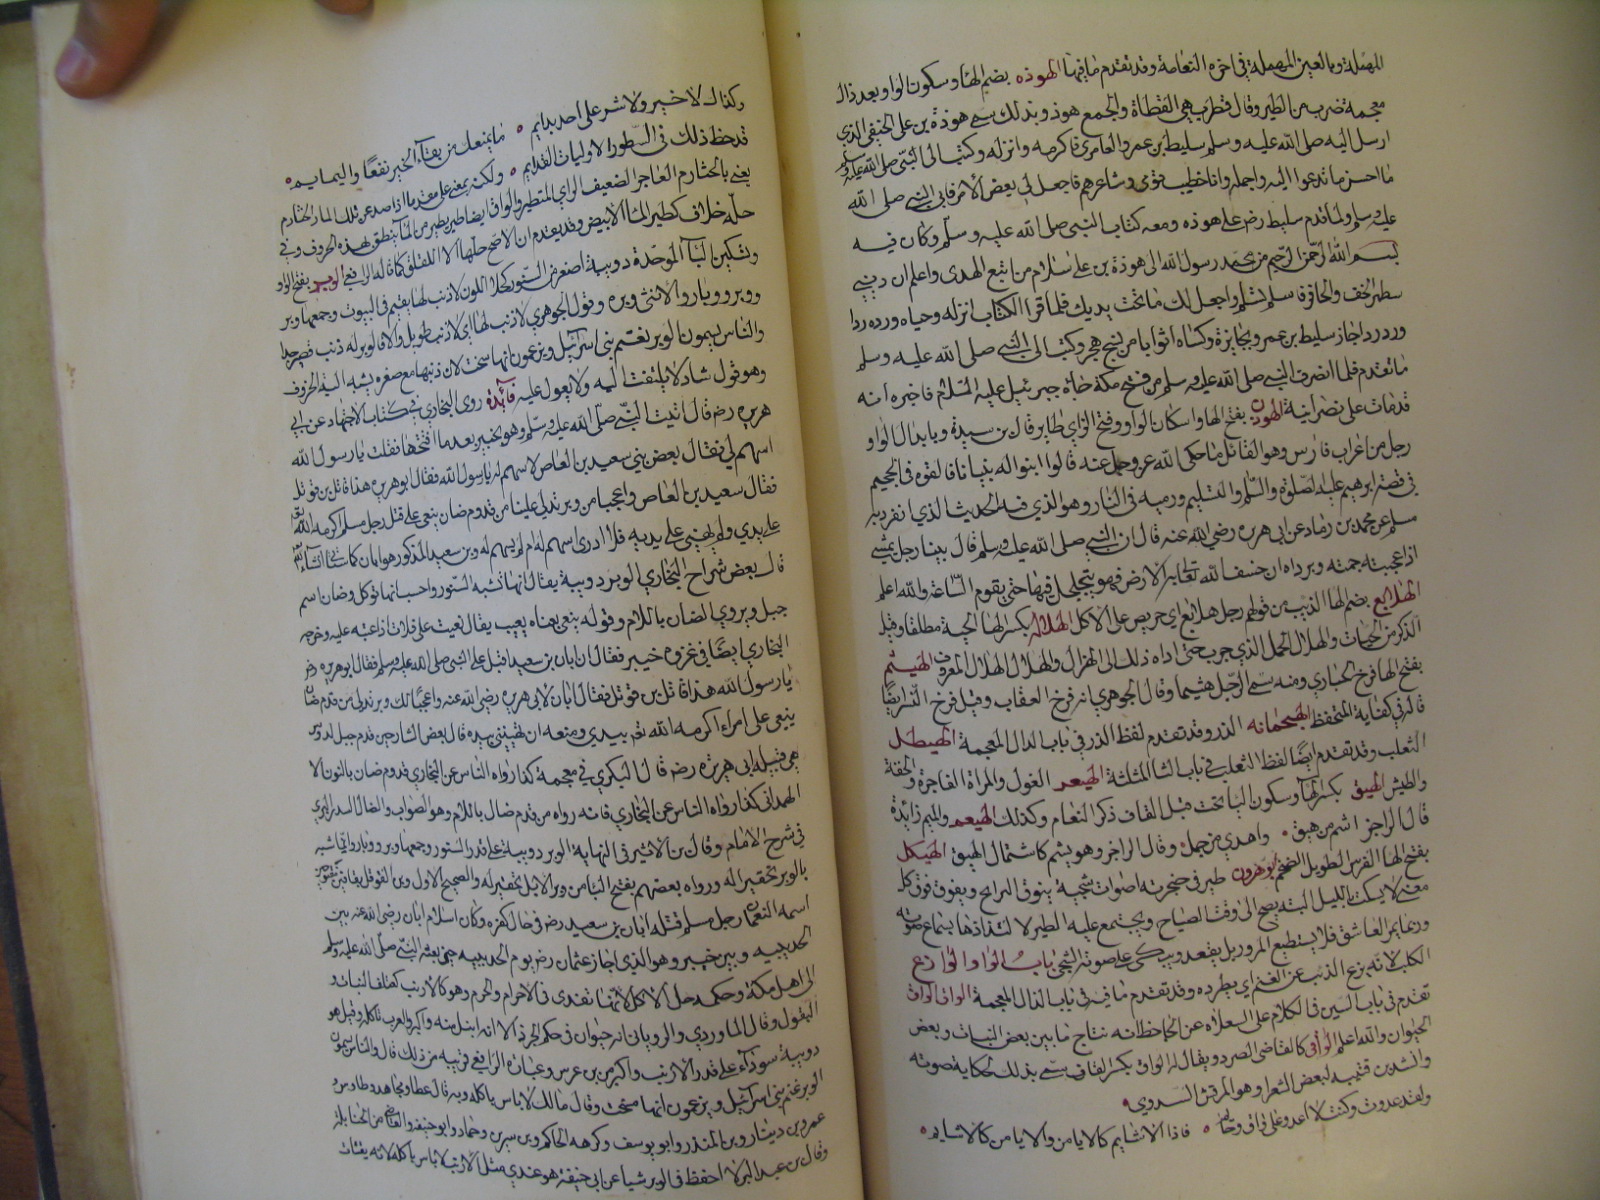 المهملة وبالعين المهملة في اخره النعامة وقد تقدم ما فيها الهوذه بضم الهاء وسكون الواو وبعد ذال
معجمة ضرب من الطير وقال قطرب هي القطاة والجمع هوذ وبذلك سمي هوذة بن علي الحنفي الذي
ارسل اليه صلى الله عليه وسلم سليط بن عمرو العامري فاكرمه وانزله وكتب الى النبي صلى الله عليه وسلم
ما احسن ما تدعوا اليه واجمله وانا خطيب قومي وشاعرهم فاجعل لي بعض الامر فابى النبي صلى الله
عليه وسلم ولما قدم سليط رضه على هوذه ومعه كتاب النبي صلى الله عليه وسلم وكان فيه
بسم الله الرحمن الرحيم من محمد رسول الله الى هوذة بن علي سلام من اتبع الهدى واعلم ان ديني
سيظهر الخف والحافر فاسلم تسلم واجعل لك ما تحت يديك فلما قرا الكتاب انزله وحياه ورده ردا
ورد رد اجاز سليط بن عمرو بجايزة وكساه اثوابا من نسج هجر وكتب الى النبي صلى الله عليه وسلم
ما تقدم فلما انصرف النبي صلى الله عليه وسلم من فتح مكة جاه جبرئيل عليه السلام فاخبره انه
قد مات على نصرانية الهوزن بفتح الها واسكان الواو وفتح الزاي طاير قال بن سيدة وبابدال الواو
رجل من اعراب فارس وهو القائل ما حكى الله عز وجل عنه قالوا ابنوا له بنيانا فالقوه في الجحيم
في قصة ابرهيم عليه الصلوة والسلم والتسليم ورميه في النار وهو الذي فيه الحديث الذي انفرد به
مسلم عن محمد بن زياد عن ابي هريره رضي الله عنه قال ان النبي صلى الله عليه وسلم قال بينا رجل يمشي
اذ اعجبته جمته وبرداه ان خسف الله تعالى به الارض فهو يتجلجل فيها حتى يقوم الساعة والله اعلم
الهلابع بضم الها الذيب من قولهم رجل هلابع اي حريص على الاكل الهلال بكسر الها الحية مطلقا وقيل
الذكر من الحيات والهلال الجمل الذي جرب حتى اداه ذلك الى الهزال والهلال الهلال المعروف الهيثم
بفتح الها فرخ الحباري ومنه سمي الرجل هيثما وقال الجوهري انه فرخ العقاب وقيل فرخ النسر ايضا
قاله في كفاية المتحفظ الهيجمانه الذر وقد تقدم لفظ الذر في باب الذال المعجمة الهيطل
الثعلب وقد تقدم ايضا لفظ الثعلب في باب الثا المثلثة الهيعر الغول والمراة الفاجرة والخفة
والطيش الهيق بكسر الها وسكون اليا تحت قبل القاف ذكر النعام وكذلك الهيعم والميم زائدة
قال الراجز اشم من هيق واهدي من جمل وقال الراجز وهو يشم كاشتمال الهيق الهيكل
بفتح الها الفرس الطويل الضخم ابو هرون طير في حنجرته اصوات شجية يفوق النوايح ويفوق فوق كل
مغن لا يسكت بالليل البته يصيح الى وقت الصياح ويجتمع عليه الطير لالتذاذها بسماع صوته
وربما يمر العاشق فلا يستطيع المرور بل يقعد ويبكي على صوته الشجي باب الواو الوازع
الكلب لانه يزع الذئب عن الغنم اي يطرده وقد تقدم ما فيه في باب الذال المعجمة الواق الواق
تقدم في باب السين في الكلام على السعلاة عن الجاحظ انه نتاج ما بين بعض النبات وبعض
الحيوان والله اعلم الواقي كالقاضي الصرد ويقال له الواق بكسر القاف سمي بذلك لحكاية صوته
وانشد بن قتيبه لبعض الشعرا وهو المرقش السدوي
ولقد عدوت وكنت لا اعدو على واق وحاتم فاذا الاشايم كالايامن والايامن كالاشايم
وكذاك لا خير ولا شر على احد بدايم ما يمنعك من بغاء الخير نفعا والتمايم
قد خط ذلك في السطور الاوليات القدايم ولكنه يمضي على مقدما اذا صد عن تلك الهنات الخثارم
يعني بالخثارم العاجز الضعيف الراي المتطير والواق ايضا طير يطير من الماء ينطق بهذه الحروف وفي
حله خلاف كطير الماء الابيض وقد تقدم ان الاصح حلها الا اللقلق كما قاله الرافعي الوبر بفتح الواو
وتسكين الباء الموحدة دويبة اصغر من السنور كحلا اللون لا ذنب لها يقيم في البيوت وجمعها وبر
ووبر ووبار والانثى وبره وقول الجوهري لا ذنب لها اي لا ذنب طويل والا فالوبر له ذنب قصير جدا
والناس يسمون الوبر بغنم بني اسرائيل ويزعمون انها مسخت لان ذنبها مع صغره يشبه الية الخروف
وهو قول شاذ لا يلتفت اليه ولا يعول عليه فائدة روى البخاري في كتاب الاجتهاد عن ابي
هريره رضه قال اتيت النبي صلى الله عليه وسلم وهو بخيبر بعد ما افتتحها فقلت يا رسول الله
اسهم لي فقال بعض بني سعيد بن العاص لا تسهم له يا رسول الله فقال ابو هريره هذا قاتل بن قوقل
فقال سعيد بن العاص واعجبا من وبر تدلى علينا من قدوم ضان ينعى علي قتل رجل مسلم اكرمه الله
على يدي ولم يهني على يديه قال فلا ادري اسهم له ام لم يسهم له وبن سعيد المذكور هو ابان
قال بعض شراح البخاري الوبر دويبة يقال انها تشبه السنور واحسب انها توكل وضان اسم
جبل ويروي الضان باللام وقوله ينعى معناه يعيب يقال نعيت على فلان اذا عبته عليه وخرجه
البخاري ايضا في غزوة خيبر فقال ان ابان بن سعيد اقبل على النبي صلى الله عليه وسلم فقال ابو هريره رضه
يا رسول الله هذا قاتل بن قوقل فقال ابان لابي هريره رضي الله عنه واعجبا لك وبر تدلى من قدوم ضان
ينعى على امرا اكرمه الله بيدي ومنعه ان يهينني بيده قال بعض الشارحين قدوم جبل لدوس
هي قبيلة ابي هريره رضه قال البكري في معجمه كذا رواه الناس عن البخاري قدوم ضان بالنون الا
الهمداني كذا رواه الناس عن البخاري فانه رواه من قدوم ضال باللام وهو الصواب والضال السدر البري
في شرح الالمام وقال بن الاثير في النهاية الوبر دويبة على قدر السنور وجمعها وبر ووبار وانما شبه
بالوبر تحقيرا له ورواه بعضهم بفتح الباء من وبر الابل تحقيرا له والصحيح الاول وبن القوقل
اسمه النعمان رجل مسلم قتله ابان بن سعيد رضه في حال كفره وكان اسلام ابان رضي الله عنه بين
الحديبيه وبين خيبر وهو الذي اجاز عثمان رضه يوم الحديبيه حين بعثه النبي صلى الله عليه وسلم
الى اهل مكة وحكمه حل الاكل لانها تفدى في الاحرام والحرم وهو كالارنب يعتلف النبات و
البقول وقال الماوردي والروياني انه حيوان في حكم الجرذ الا انه انبل منه واكبر والعرب تاكله وقيل هو
دويبة سوداء على قدر الارنب واكبر من بن عرس وعبارة الرافعي قريبه من ذلك قال والناس يسمون
الوبر غنم بني اسرائيل ويزعمون انها مسخت وقال مالك لا باس باكله وبه قال عطا ومجاهد وطاوس و
عمرو بن دينار وبن المنذر وابو يوسف وكرهه الحاكم وبن سيرين وحماد وابو حنيفه والقاضي من الحنابلة
وقال بن عبد البر لا احفظ في الوبر شيا عن ابي حنيفة هو عندي مثل الارنب لا باس باكله لانه يقتات